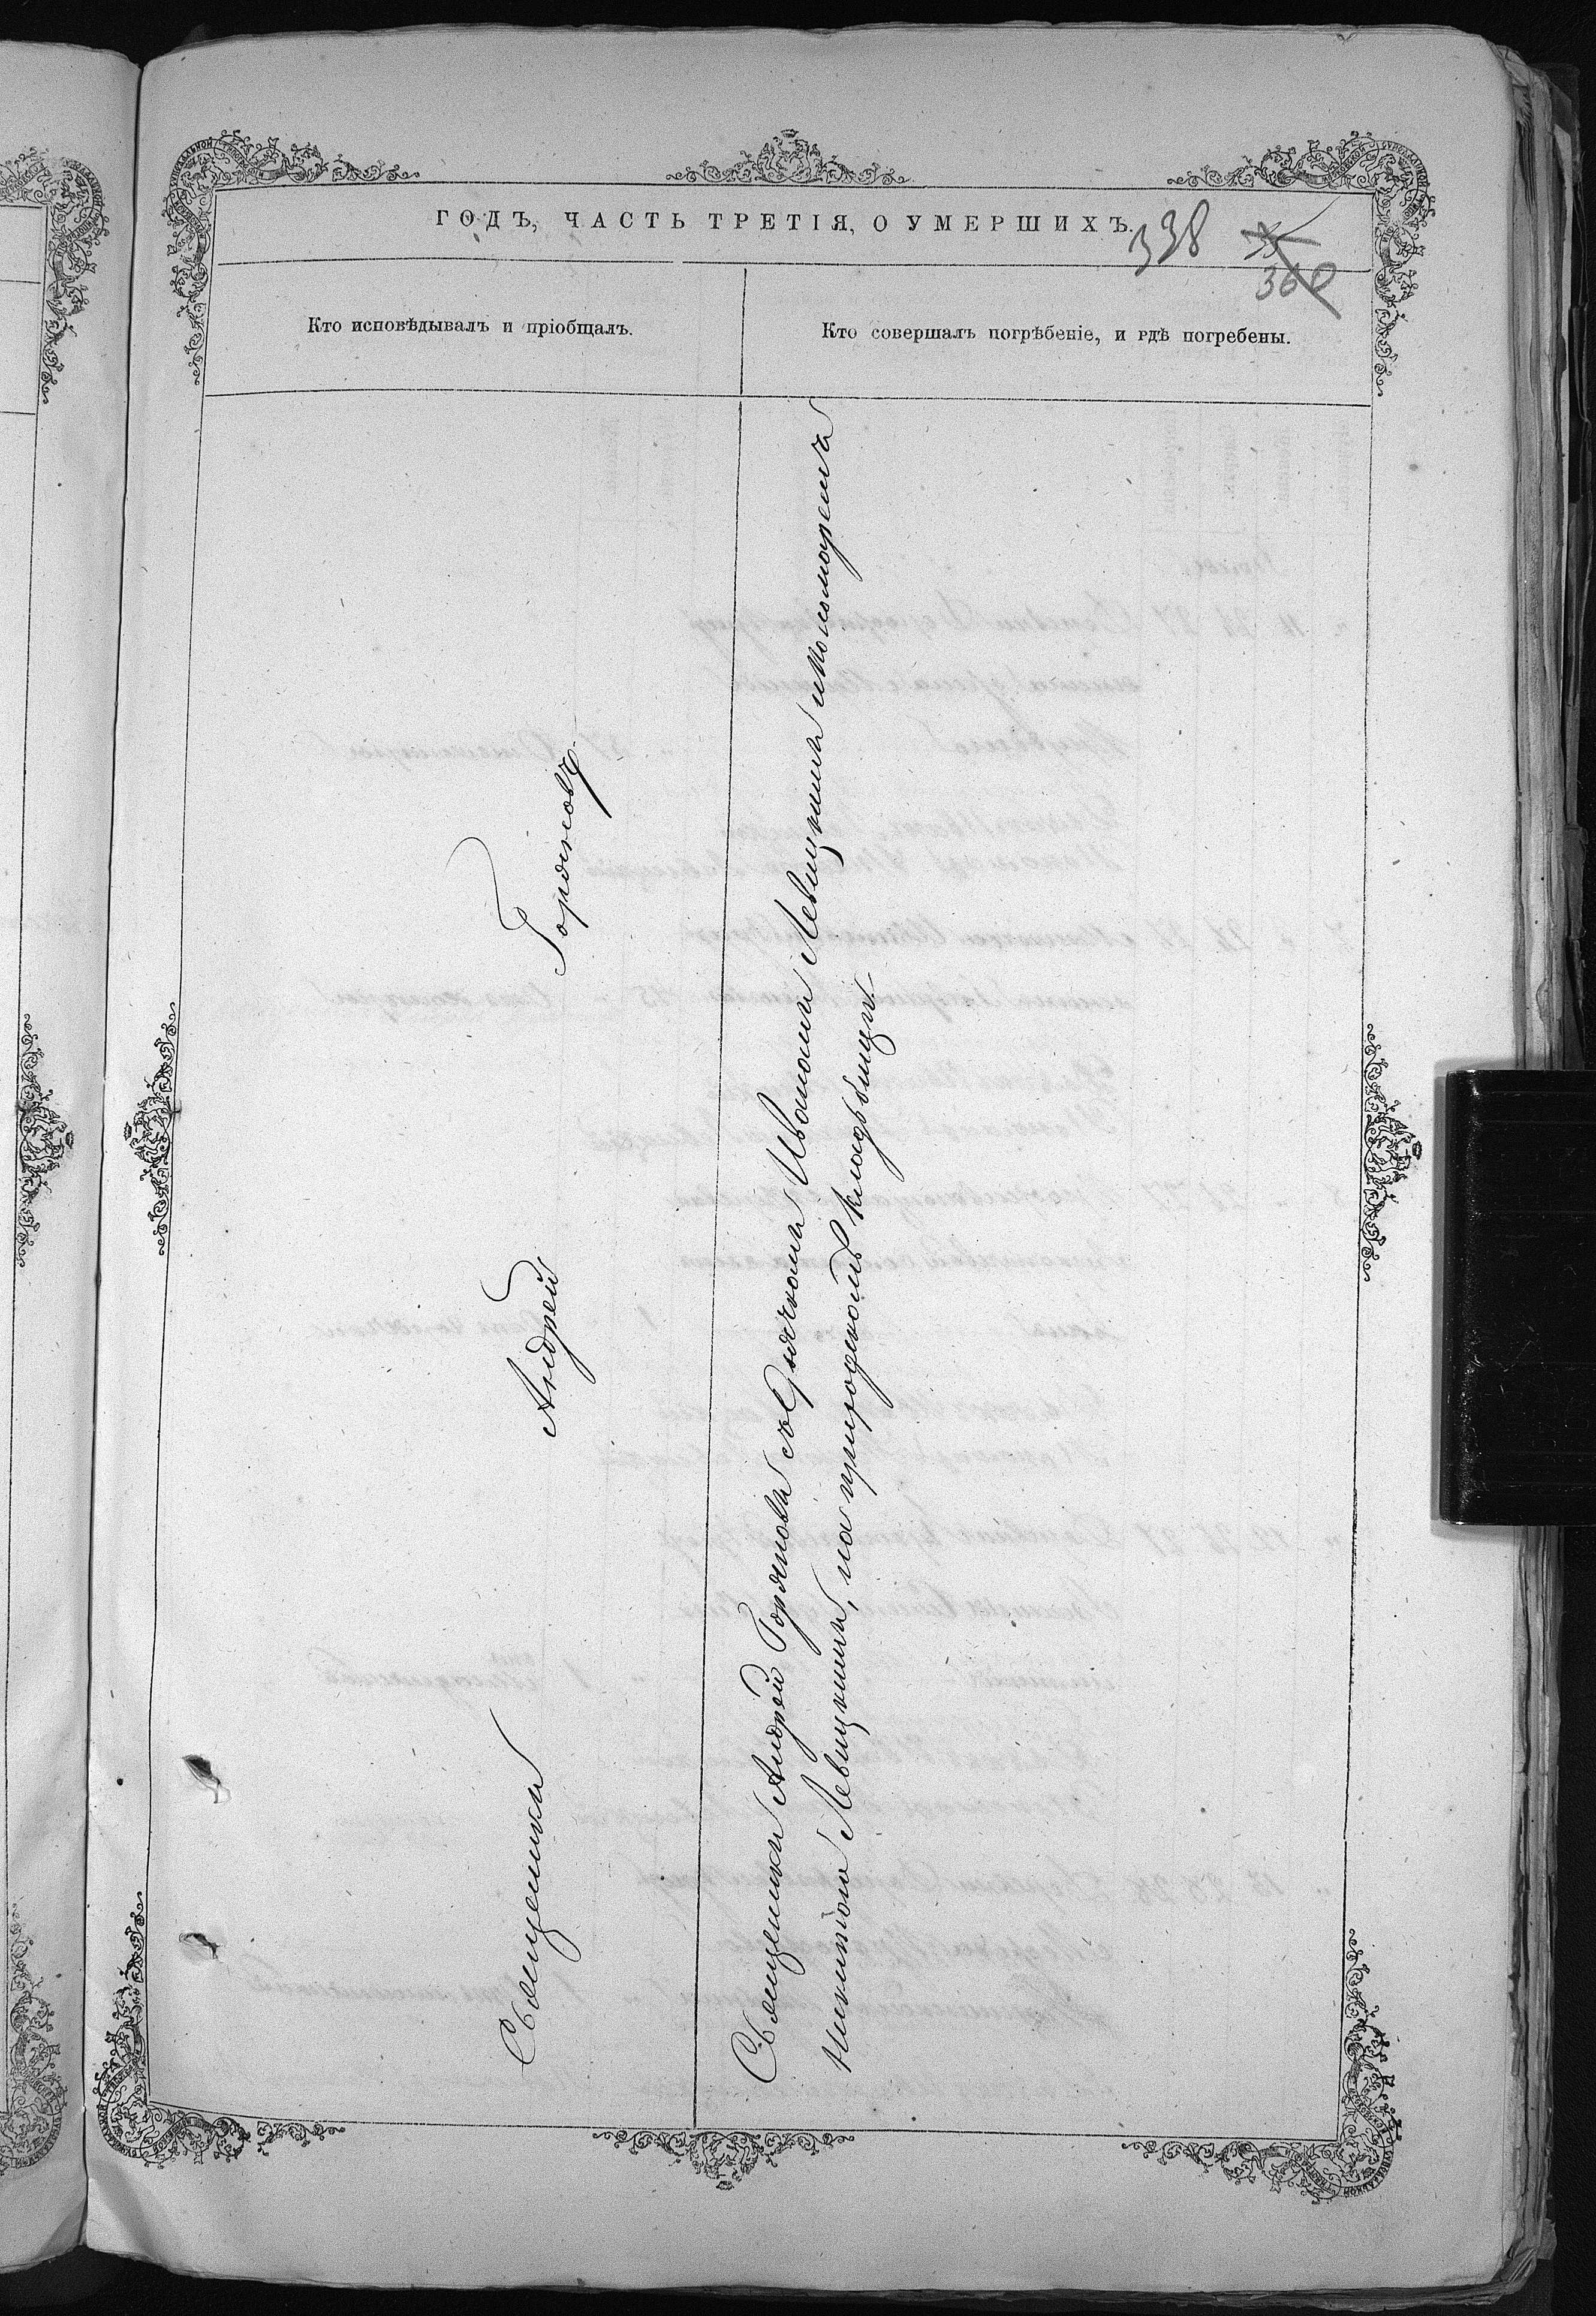 ГОДЪ, ЧАСТЬ ТРЕТІЯ, О УМЕРШИХЪ.
338
360
Кто исповѣдывалъ и пріобщалъ.
Кто совершалъ погрѣбеніе, и гдѣ погребены.
Священики Андрей Горяновъ
Священики Андрей Горянова съ Дьякони Иваномъ Левицкими и пономареми
Никитою Левицкими, на приходскомъ кладбищи